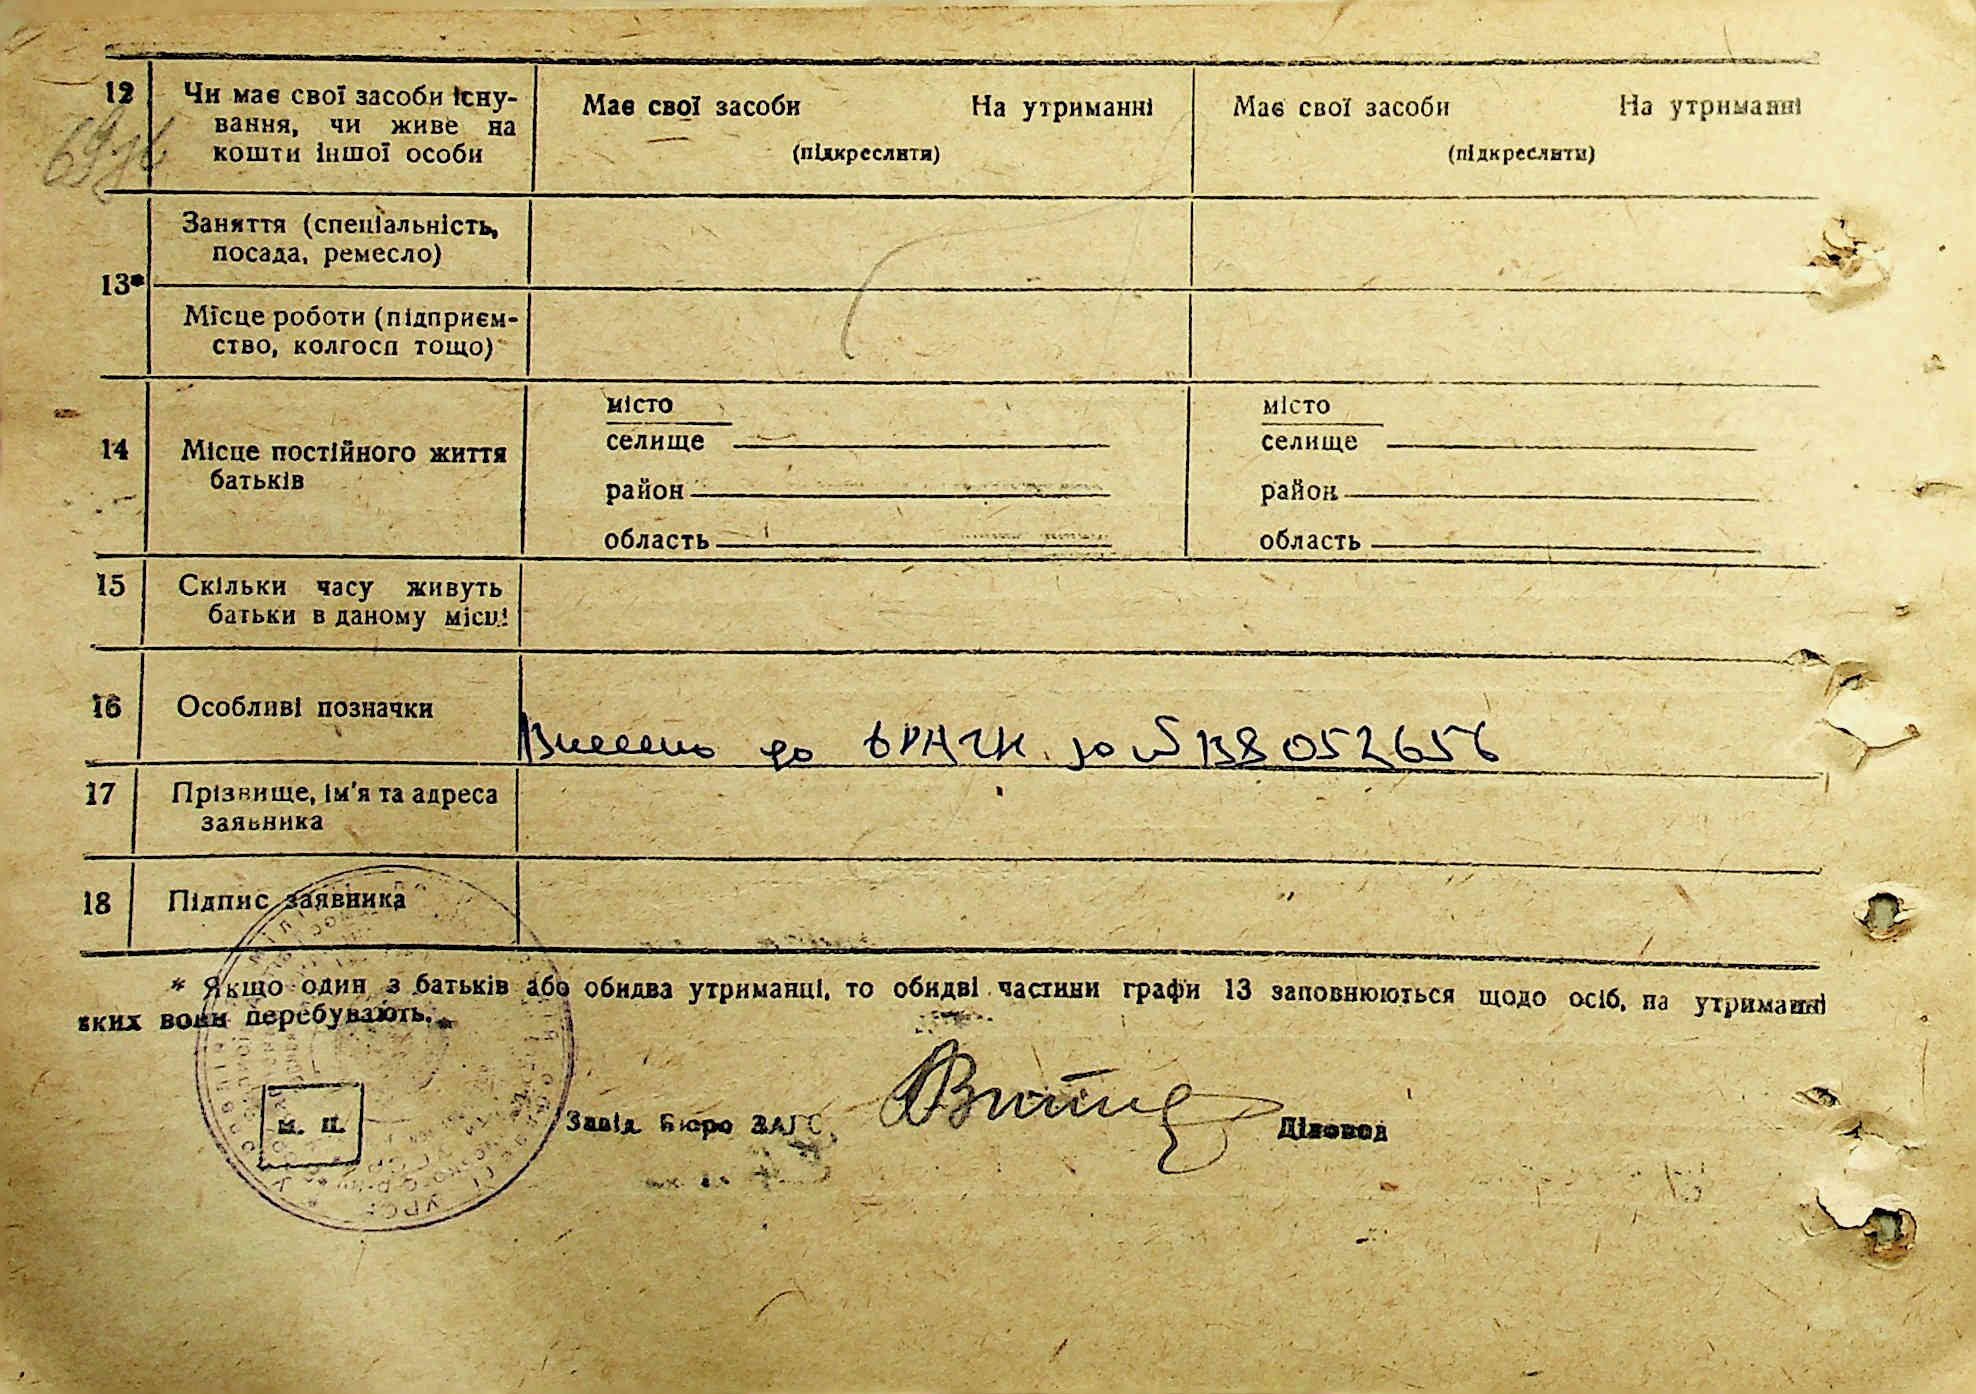 12 Чи має свої засоби існу- Має свої засоби На утриманні Має свої засоби На утриманні
вання, чи живе на (підкреслити) (підкреслити)
кошти іншої особи
Заняття (спеціальність,
посада, ремесло)
13*
Місце роботи (підприєм-
ство, колгосп тощо)
місто місто
селище селище
14 Місце постійного життя
батьків
район район
область область
15 Скільки часу живуть
батьки в даному місці
16 Особливі позначки
Внесено до ДРАЦГ за № 138 052656
17 Прізвище, ім'я та адреса
заявника
18 Підпис заявника
* Якщо один з батьків або обидва утриманці, то обидві частини графи 13 заповнюються щодо осіб, на утриманні
яких вони перебувають.
м. п. Завід. Бюро ЗАГС Діловод